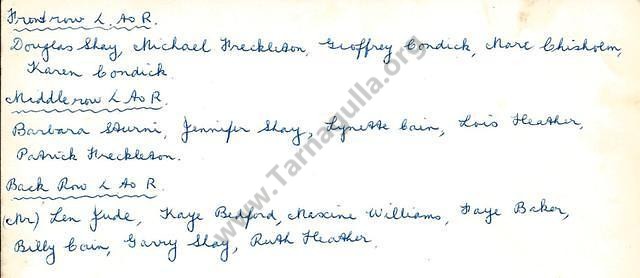 Front row L to R.
Douglas Shay, Michael Freckleton, Geoffrey Condick, Marc Chisholm,
Karen Condick.
Middle row L to R.
Barbara Sturni, Jennifer Shay, Lynette Cain, Lois Heather,
Patrick Freckleton.
Back Row L to R.
(Mr) Len Jude, Kaye Bedford, Maxine Williams, Faye Baker,
Billy Cain, Garry Shay, Ruth Heather.
www.Tarnagulla.org